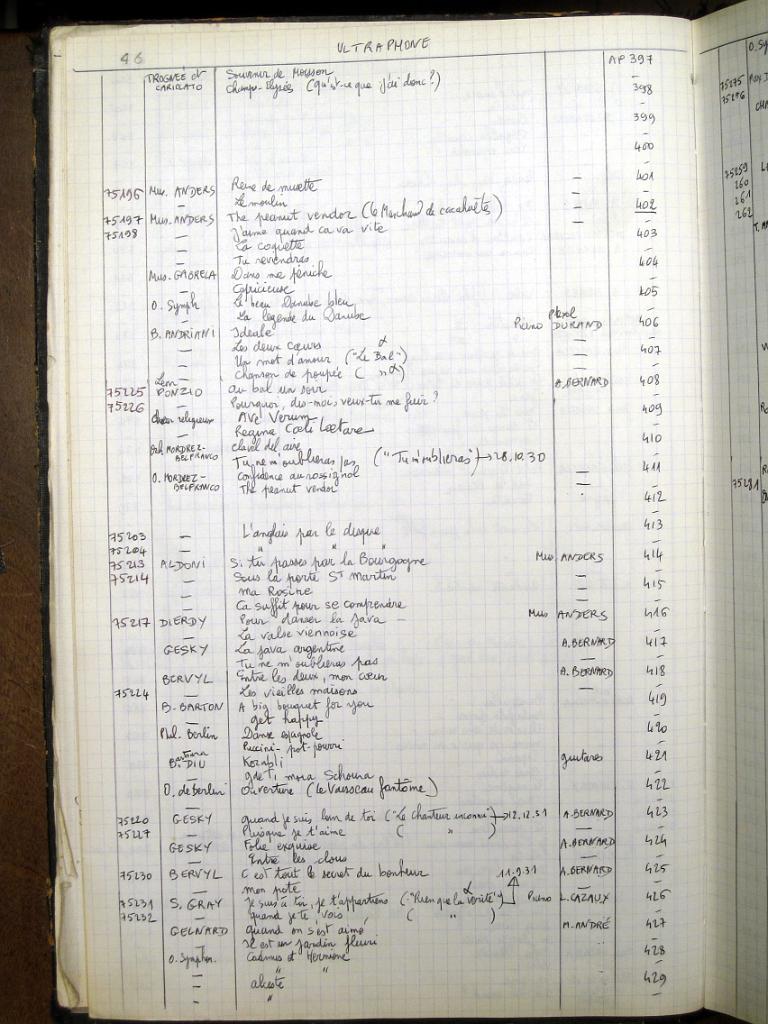 46 ULTRAPHONE
TROGNÉE et CARILLATO Souvenir de Mousson AP 397
Champs-Elysées (qu'est-ce que j'ai donc?) —
398
—
399
—
400
—
75196 Mus. ANDERS Reine de musette — 401
— Le moulin — —
75197 Mus. ANDERS The peanut vendor (le Marchand de cacahuètes) — 402
75198 — J'aime quand ca va vite —
— La coquette 403
— Tu reviendras —
Mus. GABRELA Dans ma péniche 404
— Capricieuse —
O. Symph Le beau Danube bleu 405
— La légende du Danube —
B. ANDRIANI Ideale Piano Pleyel DURAND 406
— Les deux cœurs — —
— Un mot d'amour ("Le Bal") — 407
— Chanson de poupée ( " ) — —
75225 Léon PONZIO au bal un soir A. BERNARD 408
75226 — Pourquoi, dis-moi, veux-tu me fuir? — —
Chœur religieux AVE Verum 409
— Regina Cœli Laetare —
Orch MORDREZ-BELFRANCO clavel del aire 410
Tu ne m'oublieras pas ("Tu m'oublieras") → 28.10.30 —
O. MORDREZ-BELFRANCO Confidence au rossignol — 411
The peanut vendor — —
412
—
75203 — L'anglais par le disque 413
75204 — " " " —
75213 ALDONI Si tu passes par la Bourgogne Mus ANDERS 414
75214 — Sous la porte St Martin — —
— Ma Rosine — 415
— Ca suffit pour se comprendre — —
75217 DIERDY Pour danser la java — Mus ANDERS 416
— La valse viennoise — —
GESKY La java argentine A. BERNARD 417
— Tu ne m'oublieras pas — —
BERVYL Entre les deux, mon cœur A. BERNARD 418
75224 — Les vieilles maisons — —
B. BARTON A big bouquet for you 419
— get happy —
Phil. Berlin Danse espagnole 420
— Puccini- pot-pourri —
B. DIU guitares 421
—
O. de Berlin Ouverture (le Vaisseau fantôme) 422
— —
75220 GESKY quand je suis loin de toi ("Le chanteur inconnu") → 12.12.31 A. BERNARD 423
75227 — Puisque je t'aime ( " ) — —
GESKY Folie exquise A. BERNARD 424
— Entre les clous — —
75230 BERVYL C'est tout le secret du bonheur 11.9.31 A. BERNARD 425
— mon pote — —
75231 S. GRAY Je suis à toi, je t'appartiens ("Rien que la vérité") Piano L. CAZAUX 426
75232 — quand je te vois ( " ) — —
GELNARD quand on s'est aimé M. ANDRÉ 427
— Il est un jardin fleuri — —
O. Symphon. Cadmus et Hermione 428
— " " —
— alceste 429
— " —